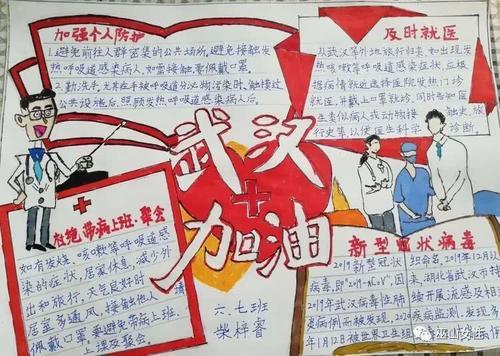 加强个人防护
1.避免前往人群密集的公共场所,避免接触发
热呼吸道感染病人,如需接触,要佩戴口罩。
2.勤洗手,尤其在手被呼吸道分泌物污染时、触摸过
公共设施后、照顾发热呼吸道感染病人后。
及时就医
从武汉等外地旅行归来,如出现发
热咳嗽等呼吸道感染症状,应根
据病情就近选择医院发热门诊
就医,并戴上口罩就诊,同时告知医
生类似病人或动物接触史、旅
行史等,以便医生科学诊断。
武汉
加油
六.七班
柴梓睿
拒绝带病上班、聚会
如有发烧、咳嗽等呼吸道感
染的症状,居家休息,减少外
出和旅行,天气良好时
居室多通风,接触他人请
佩戴口罩,要避免带病上班、
上课及聚会。
新型冠状病毒
2019新型冠状
病毒,即"2019-nCoV",因
2019年武汉病毒性肺
炎病例而被发现,2020
年1月12日被世界卫生组
织命名。2019年12月以
来,湖北省武汉市持
续开展流感及相关
疾病监测,发现
巫山女生